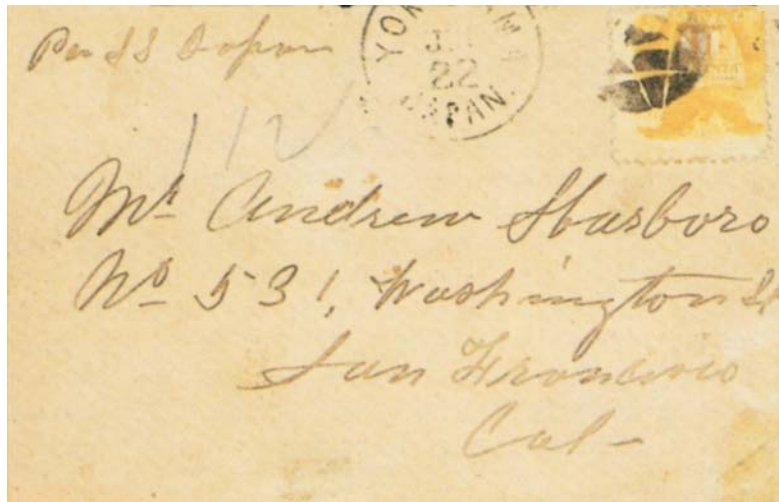 Per SS Japan
YOKOHAMA
22
JAPAN.
112
Mr Andrew Sbarboro
No 531, Washington St
San Francisco
Cal-